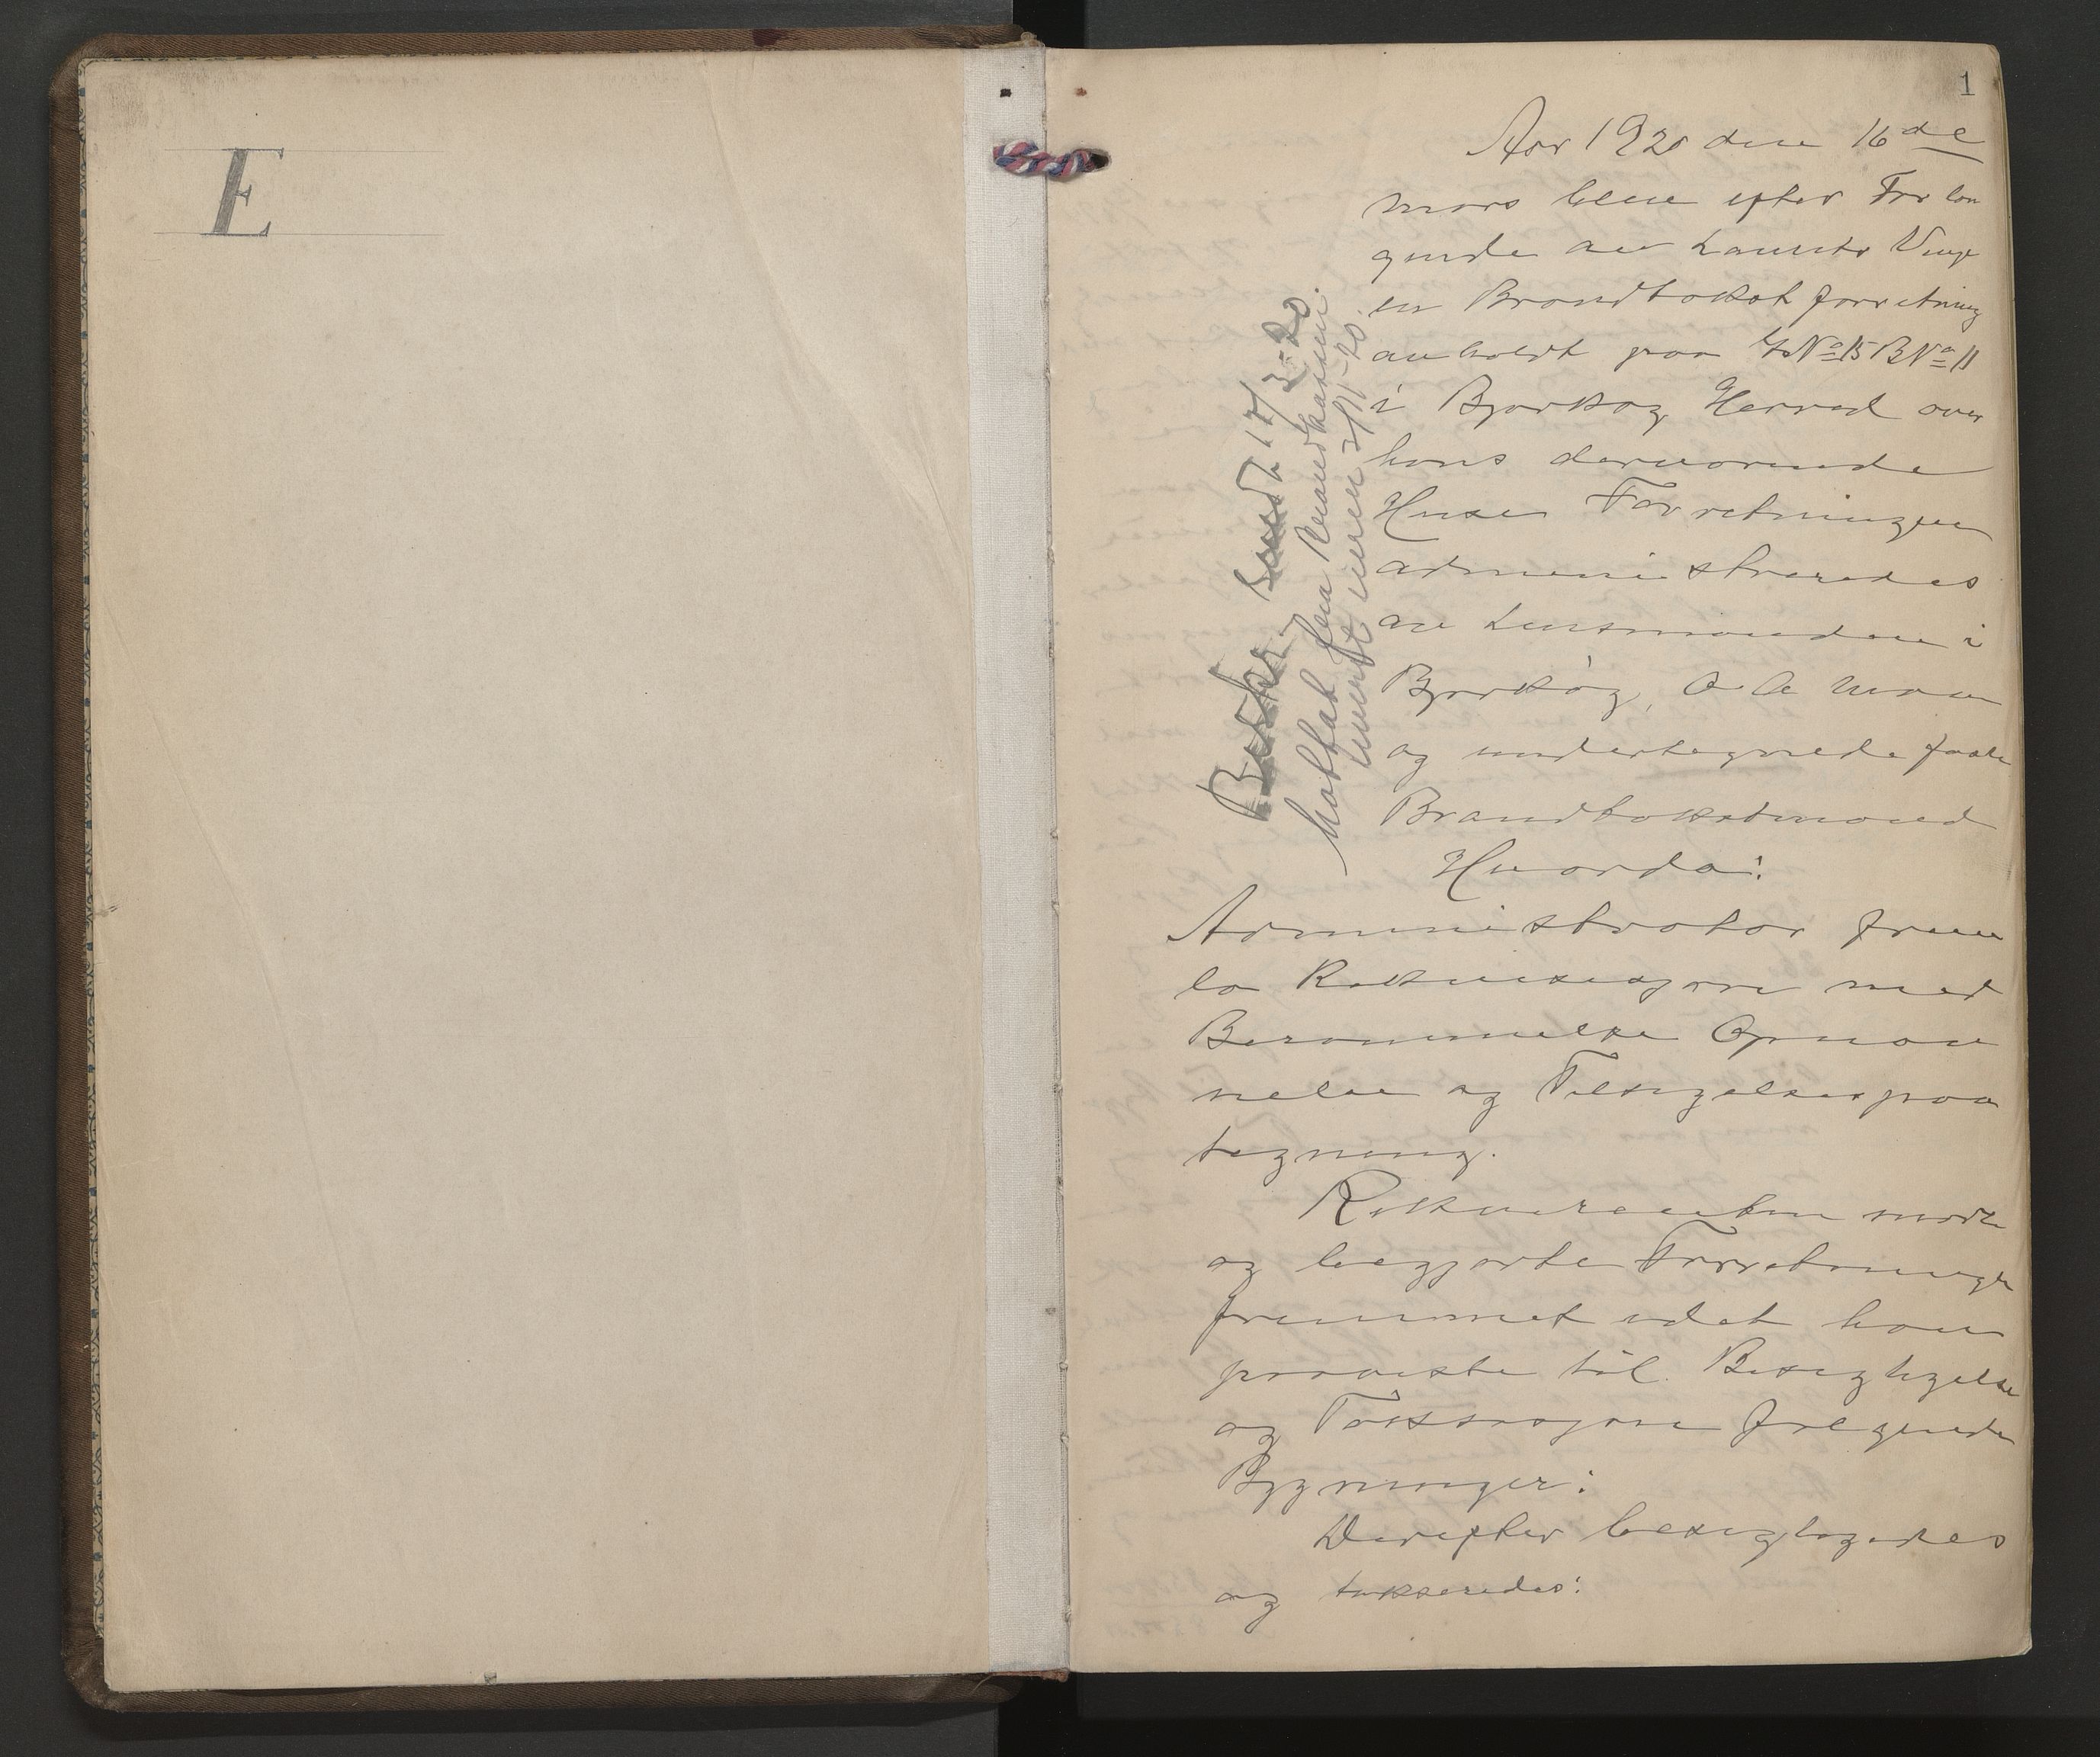 E
1
Aar 1920 den 16de
mars blev efter Forlan
gende av Laurits Vinje
en Brandtakstforretning
avholdt paa GNo 15 BNo 11
i Bjarkøy Herred over
hans derværende
Huse Forretningen
administreredes
av Lensmanden i
Bjarkøy, O. A.
og undertegnede faste
Brandtakstmænd
Hvorda:
Administrator frem
la Rekvisisjon med
Berammelse Opnæv
nelse og Tilsigelsespaa
tegning.
Rekvirenten mødte
og begjærte Forretningen
fremmet idet han
paaviste til Besigtigelse
og Taksasjon følgende
Bygninger:
Derefter besigtigedes
og takseredes:
Beskr. sendt 17/3-20
Mottat fra Brandkassen
2/11-20.